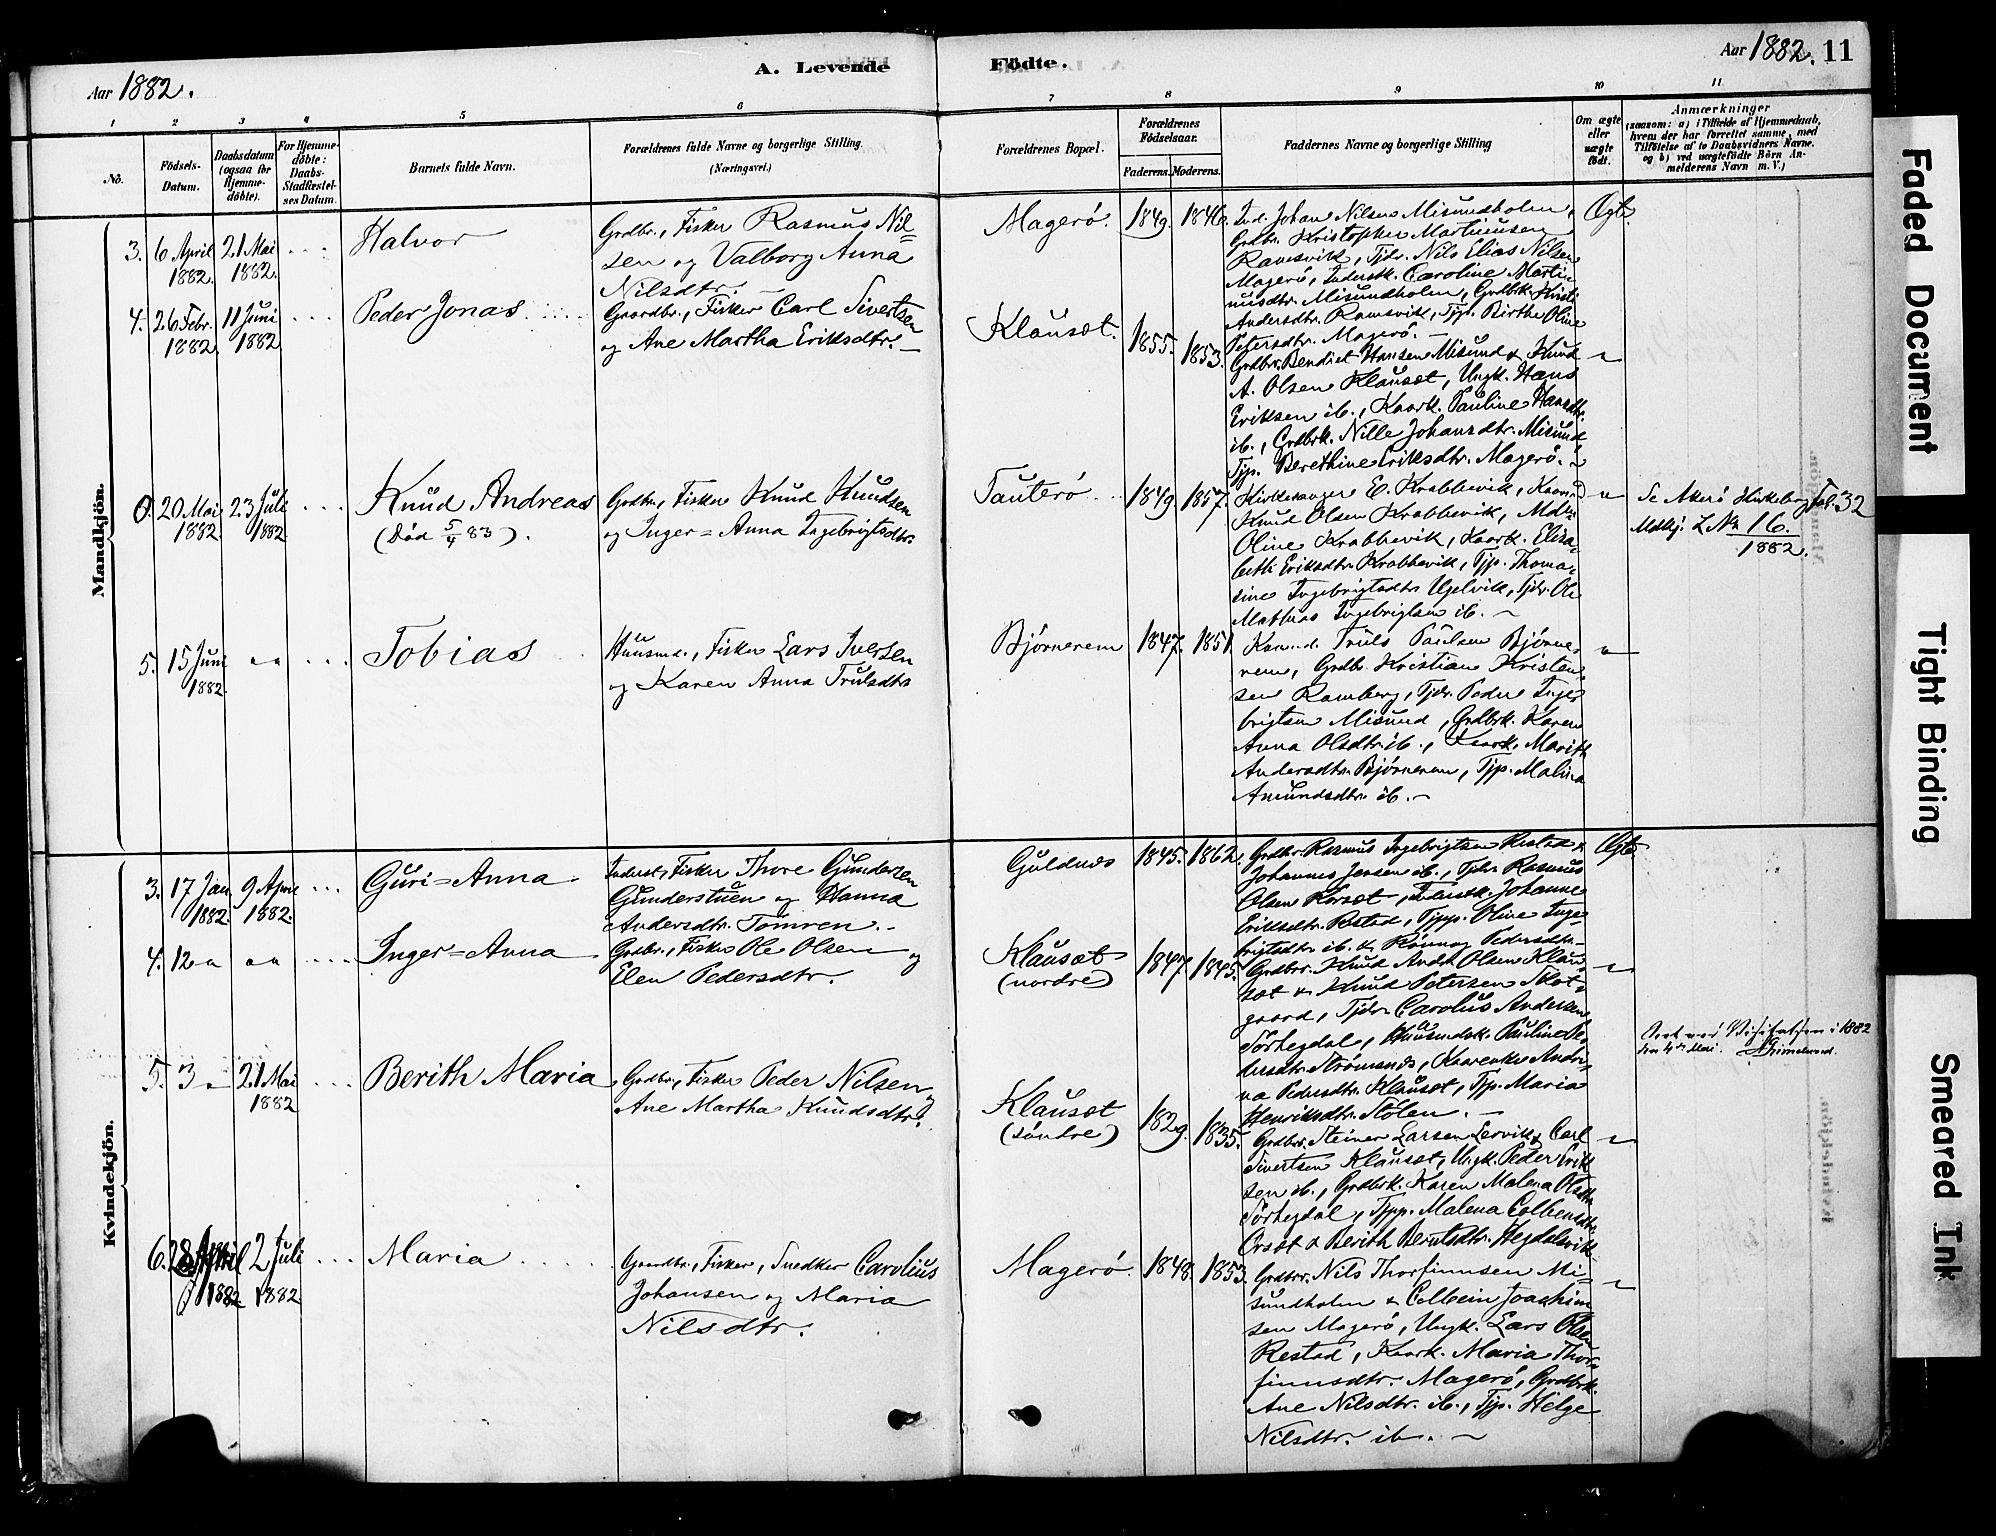 Aar 1882.
A. Levende
Födte.
Aar 1882. 11
1 2 3 4 5 6 7 8 9 10 11
No.
Födsels-Datum.
Daabsdatum (ogsaa for Hjemmedöbte).
For Hjemmedöbte: Daabs-Stadfæstelses Datum.
Barnets fulde Navn.
Forældrenes fulde Navne og borgerlige Stilling. (Næringsvei.)
Forældrenes Bopæl.
Forældrenes Födselsaar.
Faderens. Moderens.
Faddernes Navne og borgerlige Stilling
Om ægte eller uægte födt.
Anmærkninger
(saasom: a) i Tilfælde af Hjemmedaab,
hvem der har forrettet samme, med
Tilföielse af to Daabsvidners Navne.
og b) ved uægtefödte Börn An-
melderens Navn m. V.)
Mandkjön.
3. 6 April 1882. 21 Mai 1882.
Halvor
Grdbr., Fisker Rasmus Nil=
sen og Valborg Anna
Nilsdtr.
Magerö. 1849. 1846.
Ind. Johan Nilsen Misundholm,
Grdbr. Kristopher Martinusen
Ramsvik, Tjdr. Nils Elias Nilsen
Magerö, Inderstk. Caroline Marti-
nusdtr. Misundholm, Grdbrk. Kristi
Andersdtr. Ramsvik, Tjp. Birthe Oline
Petersdtr. Magerö. —
Ægte
4. 26 Febr. 1882. 11 Juni 1882
Peder Jonas
Gaardbr., Fisker Carl Sivertsen
og Ane Martha Eriksdtr. —
Klauset. 1855. 1853.
Grdbr. Bendict Hansen Misund & Knud
A. Olsen Klauset, Ungk. Hans
Eriksen ib., Kaark. Pauline Hansdtr.
ib., Grdbrk. Nille Johansdtr. Misund,
Tjp. Berethine Eriksdtr. Magerö. —
0. 20 Mai 1882. 23 Juli 1882
Knud Andreas
(Död 5/4 83).
Grdbr., Fisker Knud Knudsen
og Inger=Anna Ingebrigtsdtr.
Tauterö. 1849 1857.
Kirkesanger E. Krabbevik, Kaarmd.
Knud Olsen Krabbevik, Mdm.
Oline Krabbevik, Kaark. Elisa-
beth Eriksdtr. Krabbevik, Tjp. Thoma-
sine Ingebrigtsdtr. Ugelvik, Tjdr. Ole
Mathias Ingebrigtsen ib. —
Se Akerö Kirkebog Fol. 32
Mdkj. L. No 16.
1882.
5. 15 Juni 1882.
Tobias
Huusmd., Fisker Lars Iversen
og Karen Anna Trulsdtr.
Bjørnerem 1847. 1851
Kaarmd. Truls Paulsen Bjørne-
rem, Grdbr. Kristian Kristen-
sen Ramberg, Tjdr. Peder Inge-
brigtsen Misund, Grdbrk. Karen
Anna Olsdtr. ib., Kaark. Marith
Andersdtr. Bjørnerem, Tjp. Malina
Amundsdtr. ib. —
Kvindekjön.
3. 17 Jan. 1882. 9 April 1882.
Guri=Anna
Inderst, Fisker Thore Gundersen
Gunderstuen og Hanna
Andersdtr. Tömren. —
Guldnæs 1845. 1862.
Grdbr. Rasmus Ingebrigtsen Restad &
Johannes Jensen ib., Tjdr. Rasmus
Olsen Korset, Inderstk. Johanne
Eriksdtr. Restad, Tjpp. Oline Inge-
brigtsdtr. ib. & Rönnog Pedersdtr.
Ægte
4. 12
Inger=Anna
Grdbr., Fisker Ole Olsen og
Elen Pedersdtr.
Klauset (nordre) 1847. 1845.
Grdbrr. Knud Andr. Olsen Klau-
set & Knud Petersen Skot-
gaard, Tjdr. Carolus Andersen
Törhegdal, Huusmdsk. Pauline Pe-
dersdtr. Strömsnes, Kaarenke Andri-
na Pedersdtr. Klauset, Tjp. Maria
Henriksdtr. Stölen. —
Seet ved Visitatsen i 1882
den 4de Mai.
5. 3 21 Mai 1882
Berith Maria
Grdbr., Fisker Peder Nilsen &
Ane Martha Knudsdtr.
Klauset (söndre) 1829. 1835.
Grdbr. Steiner Larsen Lervik & Carl
Sivertsen Klauset, Ungk. Peder Erik-
sen ib., Grdbrk. Karen Malena Olsdtr.
Törhegdal, Tjpp. Malena Colbensdtr.
Orset & Berith Berntsdtr. Hegdalsvik
6. 28 April 1882. 2 Juli 1882
Maria
Gaardbr., Fisker, Snedker Carolius
Johansen og Maria
Nilsdtr.
Magerö. 1848. 1853.
Grdbrr. Nils Thorfinnsen Mi-
sundholm & Colbein Joachim-
sen Magerö, Ungk. Lars Olsen
Restad, Kaark. Maria Thor-
finnsdtr. Magerö, Grdbrk.
Ane Nilsdtr. ib., Tjp. Helge
Nilsdtr. ib. —
Faded Document
Tight Binding
Smeared Ink